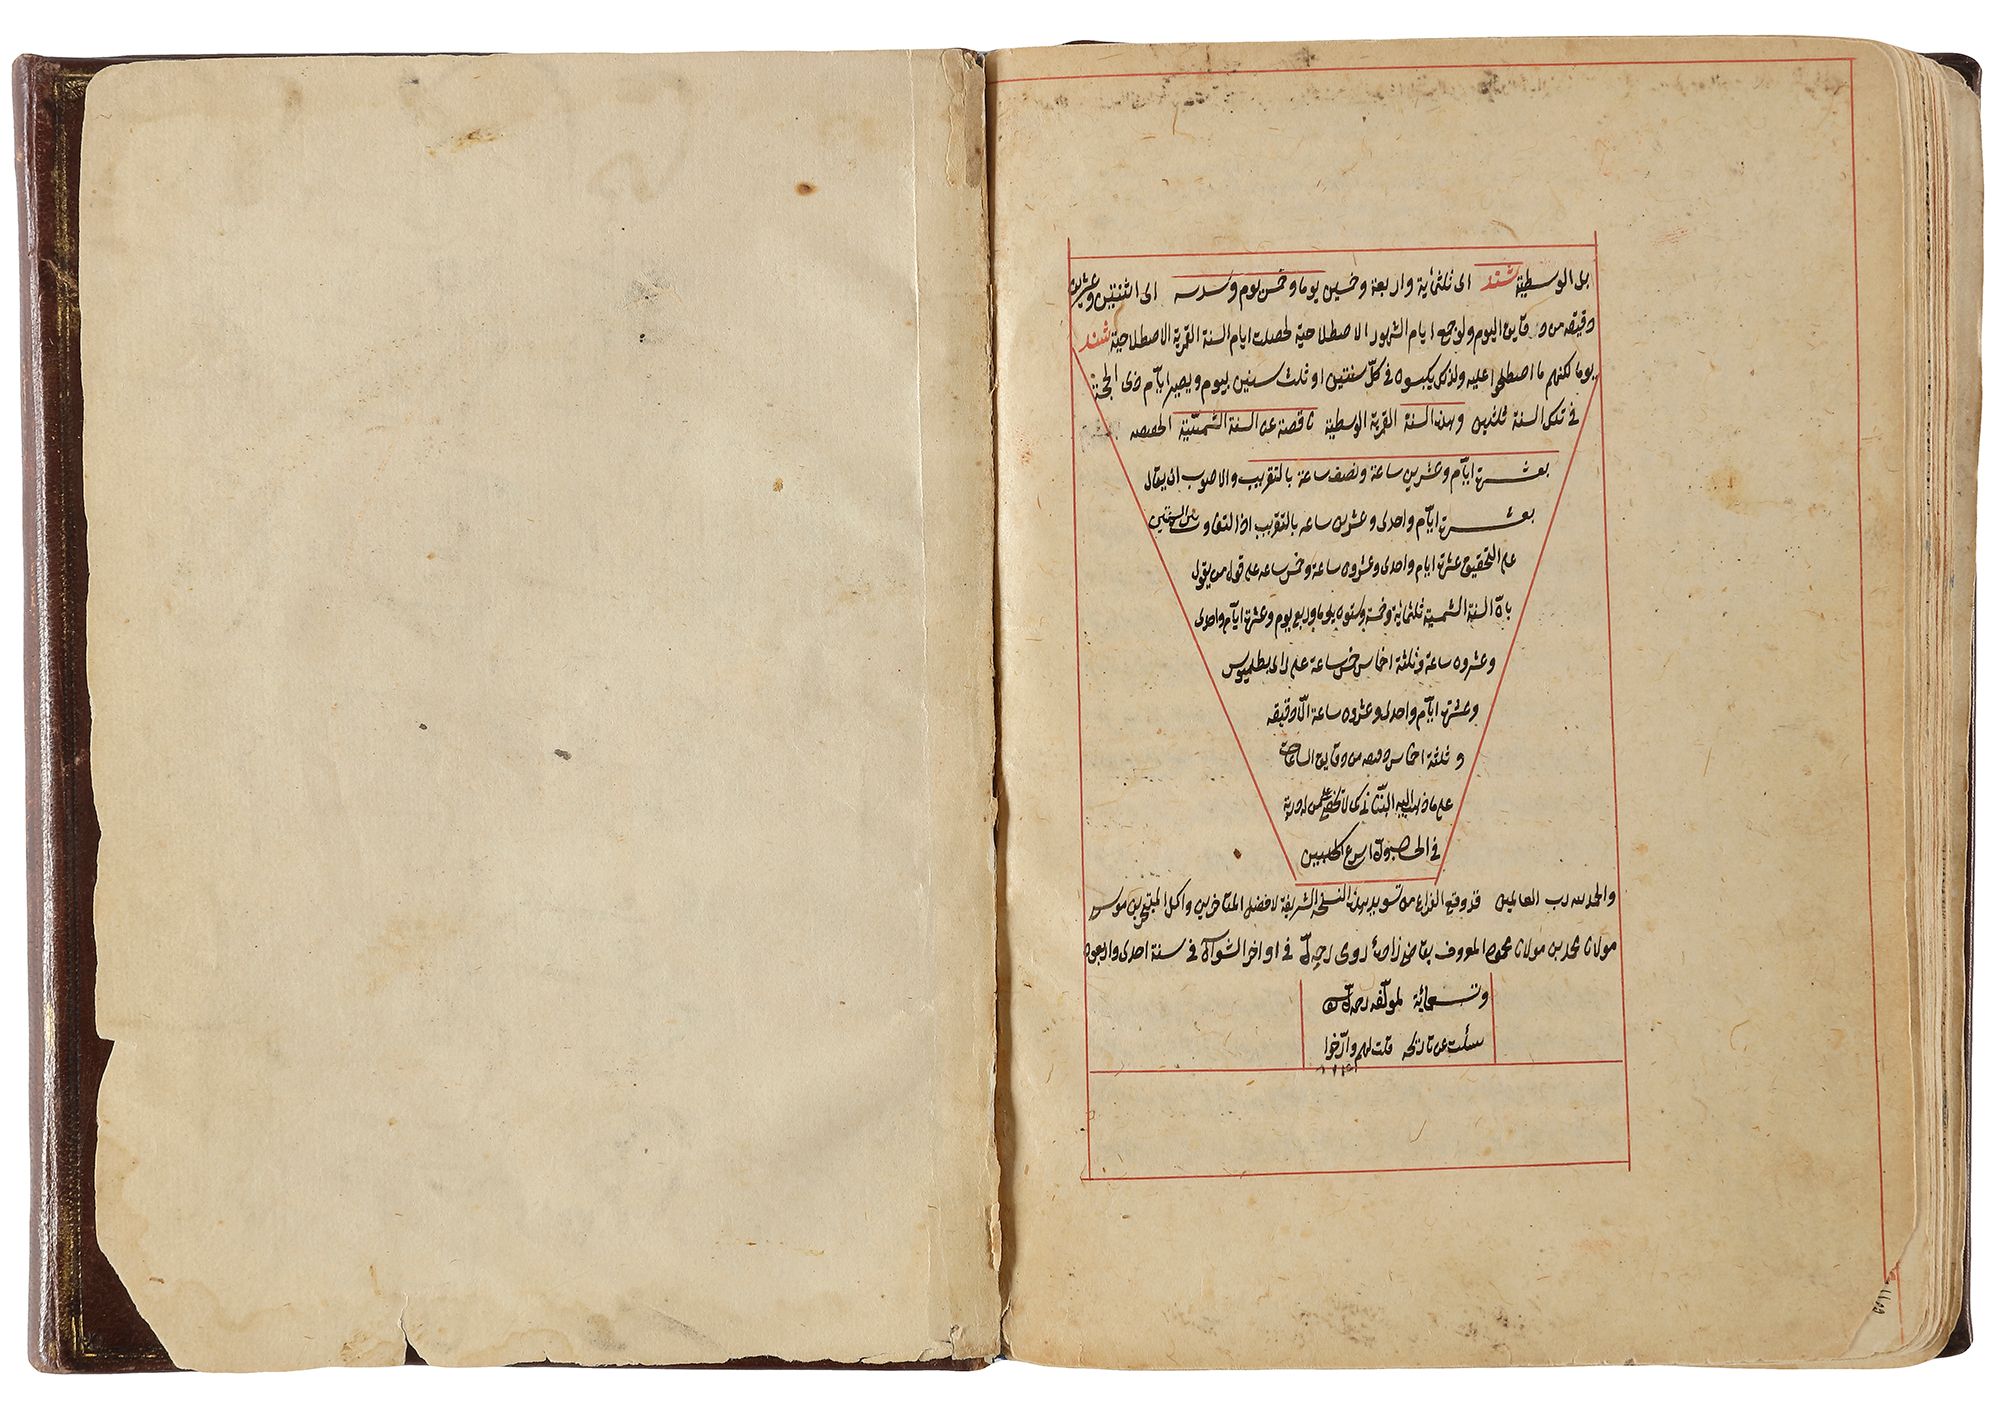 بل الوسطية شند الى ثلثمائة واربعة وخمسين يوما وخمس يوم وسدسه الى اثنتين وعشرين
دقيقه من دقايق اليوم ولو جمع ايام الشهور الاصطلاحية لحصلت ايام السنة القمرية الاصطلاحية شند
يوما لكنهم ما اصطلحوا عليه ولذلك يكبسون فى كل سنتين او ثلث سنين بيوم ويصير ايام ذى الحجة
فى تلك السنة ثلثين وهذه السنة القمرية الوسطية ناقصة عن السنة الشمسية الحقيقيه
بعشرة ايام وعشرين ساعة ونصف ساعة بالتقريب والاصوب ان يقال
بعشرة ايام واحدى وعشرين ساعه بالتقريب اذ التفاوت بين السنتين
على التحقيق عشرة ايام واحدى وعشرون ساعة وخمس ساعه على قول من يقول
بان السنة الشمسية ثلثمائة وخمسة وستون يوما وربع يوم وعشرة ايام واحدى
وعشرون ساعة وثلثة اخماس خمس ساعة على راى بطلميوس
وعشرة ايام واحدى وعشرون ساعة الا دقيقه
وثلثة اخماس دقيقه من دقايق الساعات
على ما ذهب اليه البتانى كما لا يخفى على من له دربة
فى الحساب وهو اسرع الحاسبين
والحمد لله رب العالمين قد وقع الفراغ من تسويد هذه النسخة الشريفة لافضل المتاخرين واكمل المتبحرين موسى
مولانا محمد بن مولانا محمود المعروف بقاضى زاده رومى رحمه الله فى اواخر الشوال فى سنة احدى واربعون
وتسعمائة لمؤلفه رحمة الله
سئلت عن تاريخه قلت لهم وارخوا